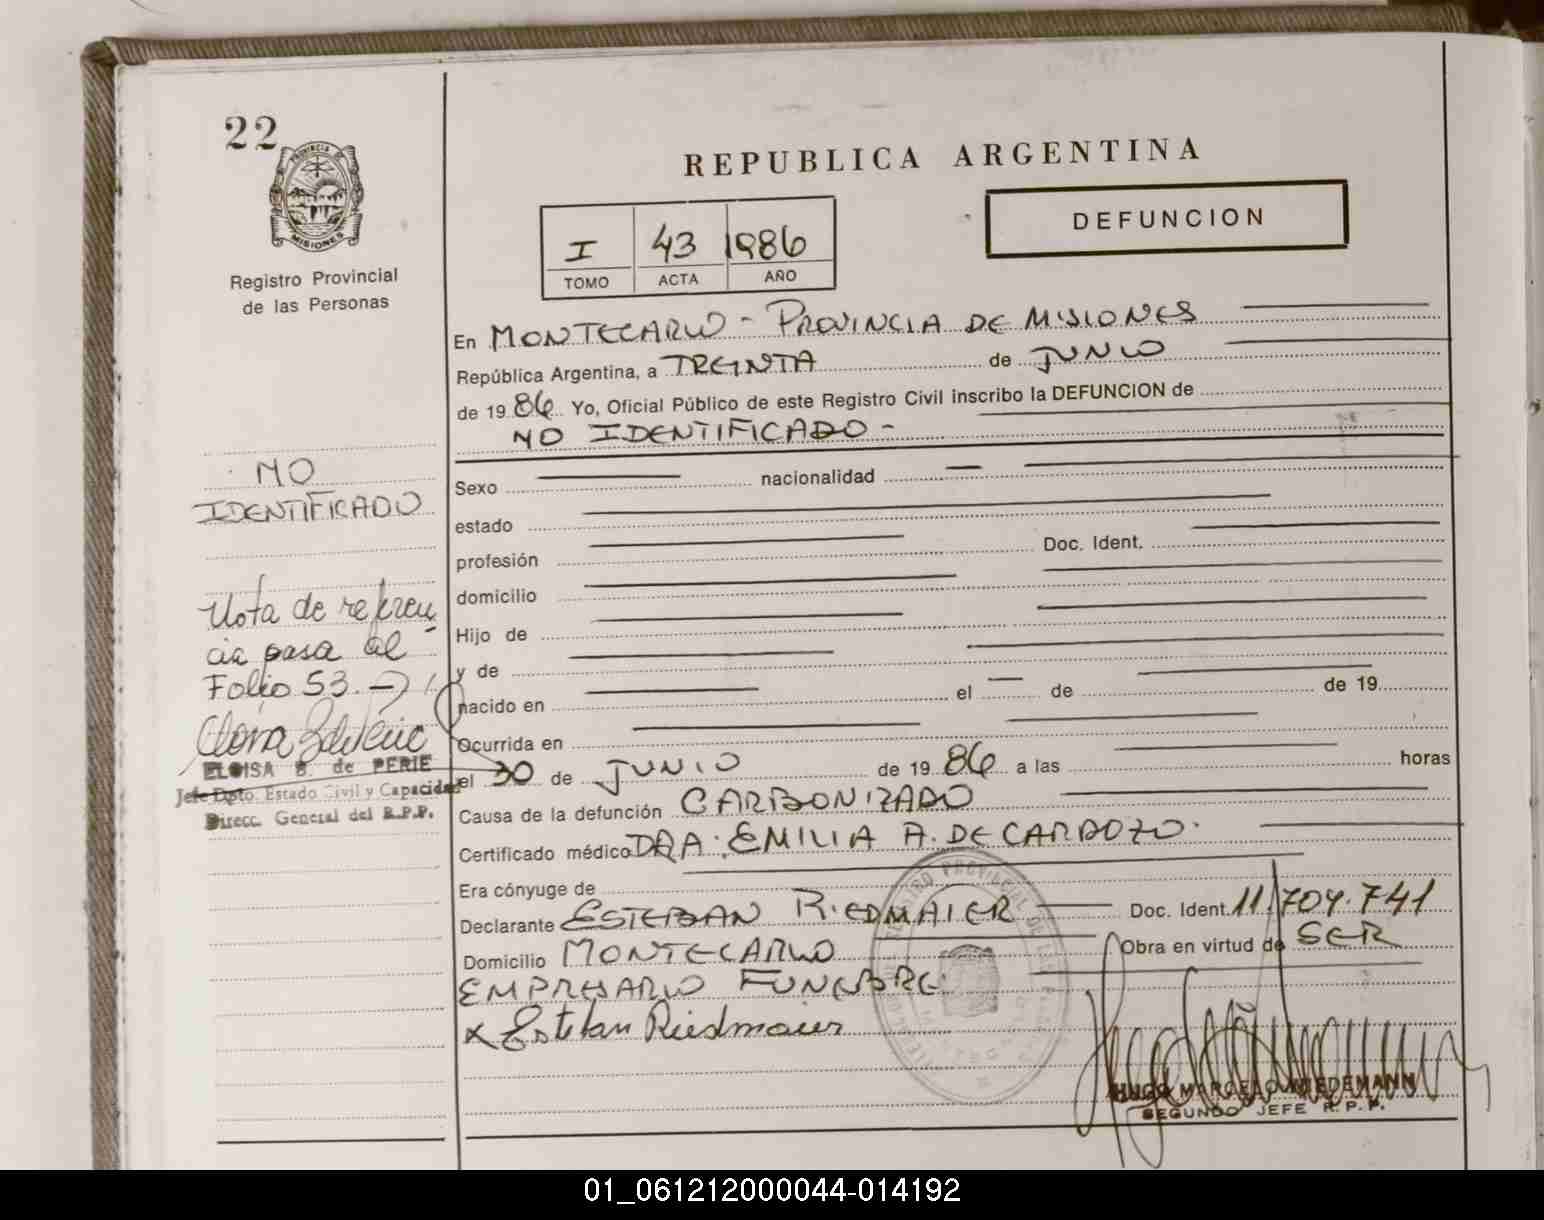 22
PROVINCIA DE
MISIONES
Registro Provincial
de las Personas
REPUBLICA ARGENTINA
DEFUNCION
I 43 1986
TOMO ACTA AÑO
En MONTECARLO - PROVINCIA DE MISIONES
República Argentina, a TREINTA de JUNIO
de 19 86 Yo, Oficial Público de este Registro Civil inscribo la DEFUNCION de
NO IDENTIFICADO -
Sexo nacionalidad
estado
profesión Doc. Ident.
domicilio
Hijo de
y de
nacido en el de de 19
Ocurrida en
el 30 de JUNIO de 19 86 a las horas
Causa de la defunción CARBONIZADO
Certificado médico DRA. EMILIA A. DE CARDOZO.
Era cónyuge de
Declarante ESTEBAN RIEDMAIER Doc. Ident. 11.704.741
Domicilio MONTECARLO Obra en virtud de SER
EMPRESARIO FUNEBRE
x Esteban Riedmaier
HUGO MARCELO WIEDEMANN
SEGUNDO JEFE R.P.P.
NO
IDENTIFICADO
Nota de referen
cia pasa al
Folio 53.
ELOISA B. de PERIE
Jefe Dpto. Estado Civil y Capacidad
Direcc. General del R.P.P.
01_061212000044-014192